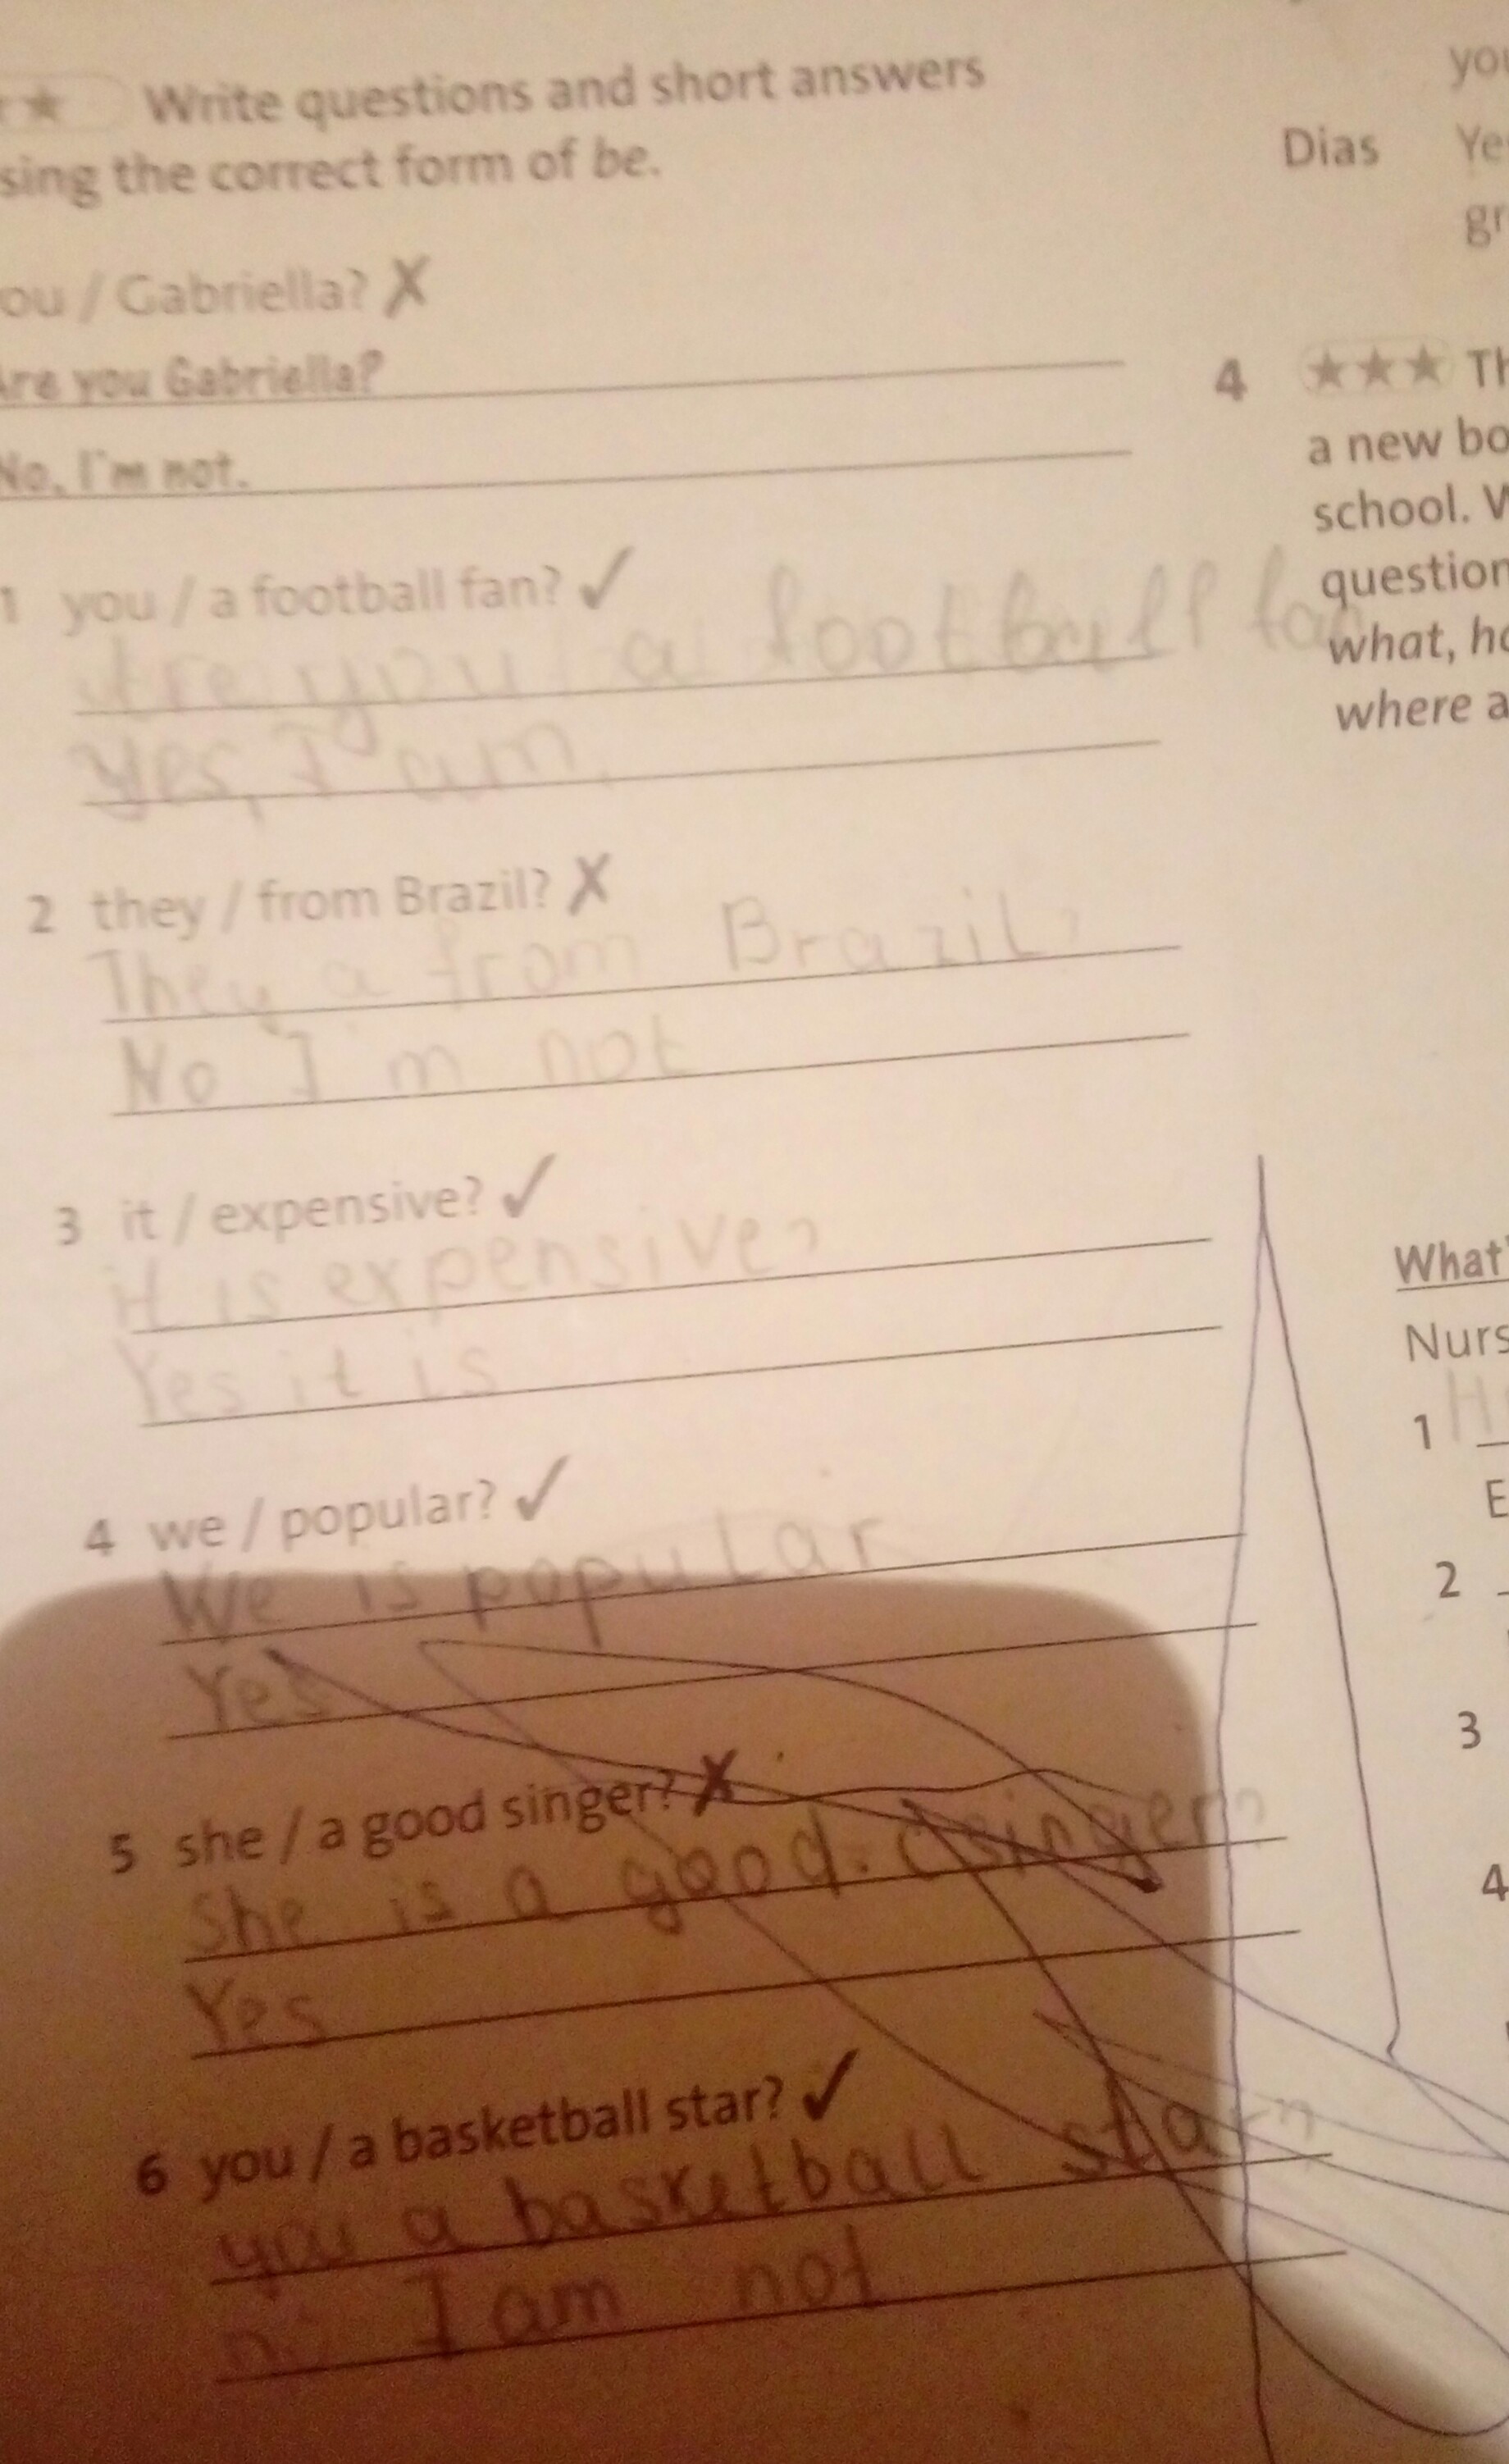 ★ Write questions and short answers
sing the correct form of be.
ou / Gabriella? ✗
Are you Gabriella?
No, I'm not.
1 you / a football fan? ✓
Are you a football fan
Yes, I am.
2 they / from Brazil? ✗
They a from Brazil?
No I m not
3 it / expensive? ✓
it is expensive?
Yes it is
4 we / popular? ✓
We is popular
Yes
5 she / a good singer? ✗
She is a good singer?
Yes
6 you / a basketball star? ✓
you a basketball star?
I am not
you
Dias Ye
gr
4 ★★★ Th
a new bo
school. W
question
what, ho
where a
What'
Nurs
1 H
E
2
3
4